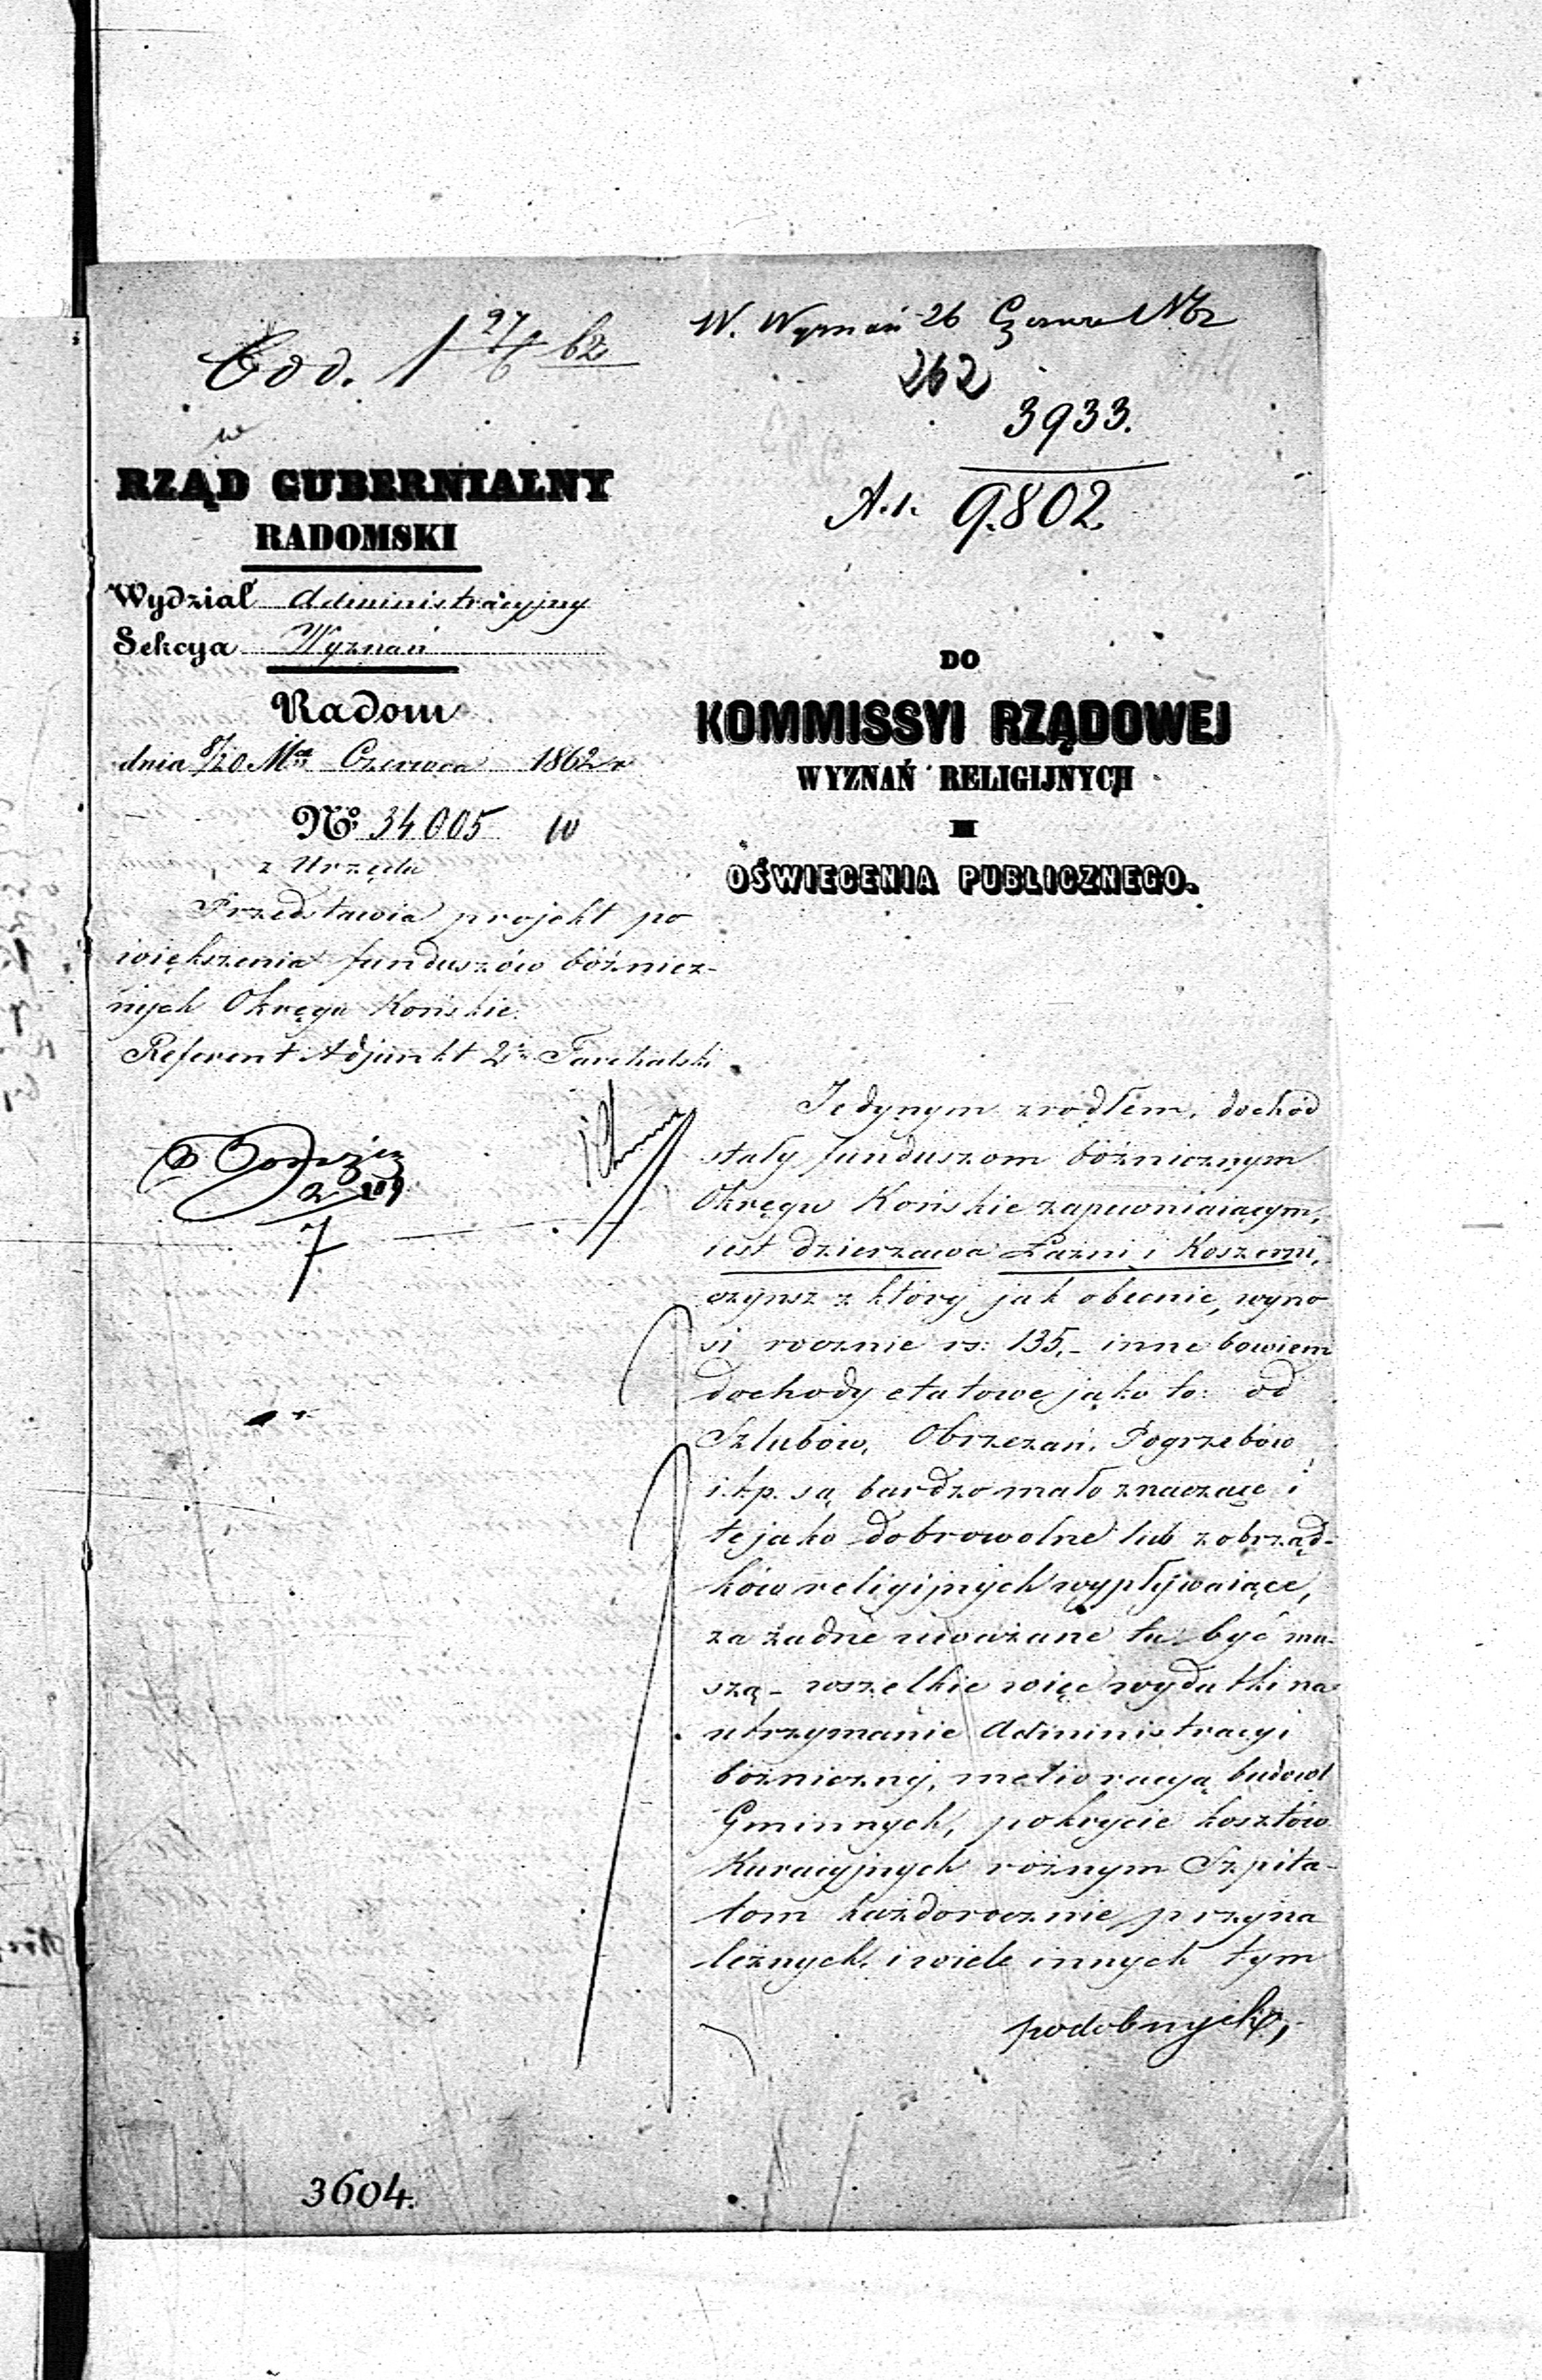 W. Wyznań 26 Czerwca
262
3933.
9802.
RZĄD GUBERNIALNY
RADOMSKI
Wydział Administracyjny
Sekcya Wyznań
Radom
dnia 8/20 Mca Czerwca 1862 r
No. 34005
z Urzędu
Przedstawia projekt po
większenia funduszów bóźnicz-
nych Okręgu Końskie.
Referent Adjunkt
7
DO
KOMMISSYI RZĄDOWEJ
WYZNAŃ RELIGIJNYCH
I
OŚWIECENIA PUBLICZNEGO.
Jedynym zrodłem, dochód
stały funduszom bóżnicznym
Okręgu Końskie zapewniaiącym,
iest dzierzawa Łazni i Koszerni,
czynsz z który jak obecnie, wyno
si rocznie rs: 135,- inne bowiem
dochody etatowe jako to: od
Szlubów, Obrzezań, Pogrzebów
i.t.p. są bardzo mało znaczące i
te jako dobrowolne lub z obrząd-
ków religijnych wypływaiące,
za żadne uważane tu być mu-
szą - wszelkie więc wydatki na
utrzymanie Administracyi
bożniczny, melioracyą budowl
Gminnych, pokrycie kosztów
Kuracyjnych rożnym Szpita-
lom każdorocznie przyna
leżnych, i wiele innych tym
podobnych,
3604.